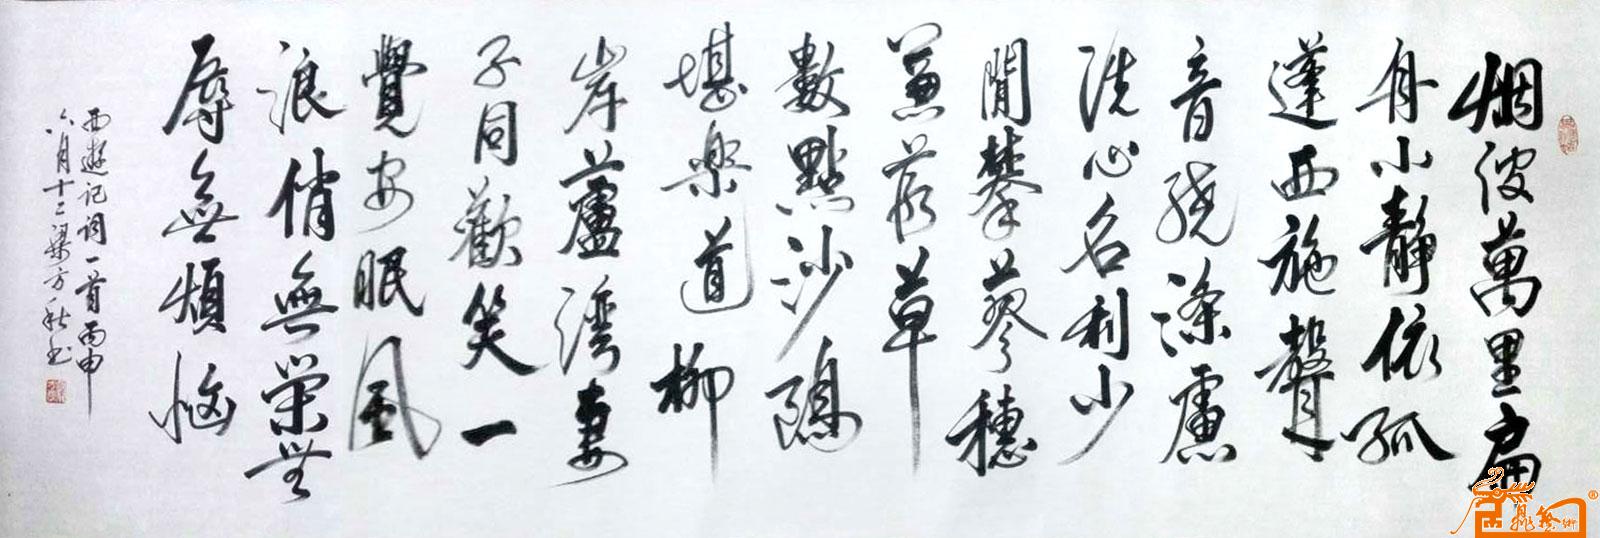 烟波萬里扁
舟小靜依孤
蓬西施聲
音繞滌慮
洗心名利少
閒攀蓼穗
蒹葭草
數點沙鷗
堪樂道柳
岸蘆灣妻
子同歡笑一
覺安眠風
浪俏無榮無
辱無煩惱
西遊记词一首丙申
六月十二梁方秋书